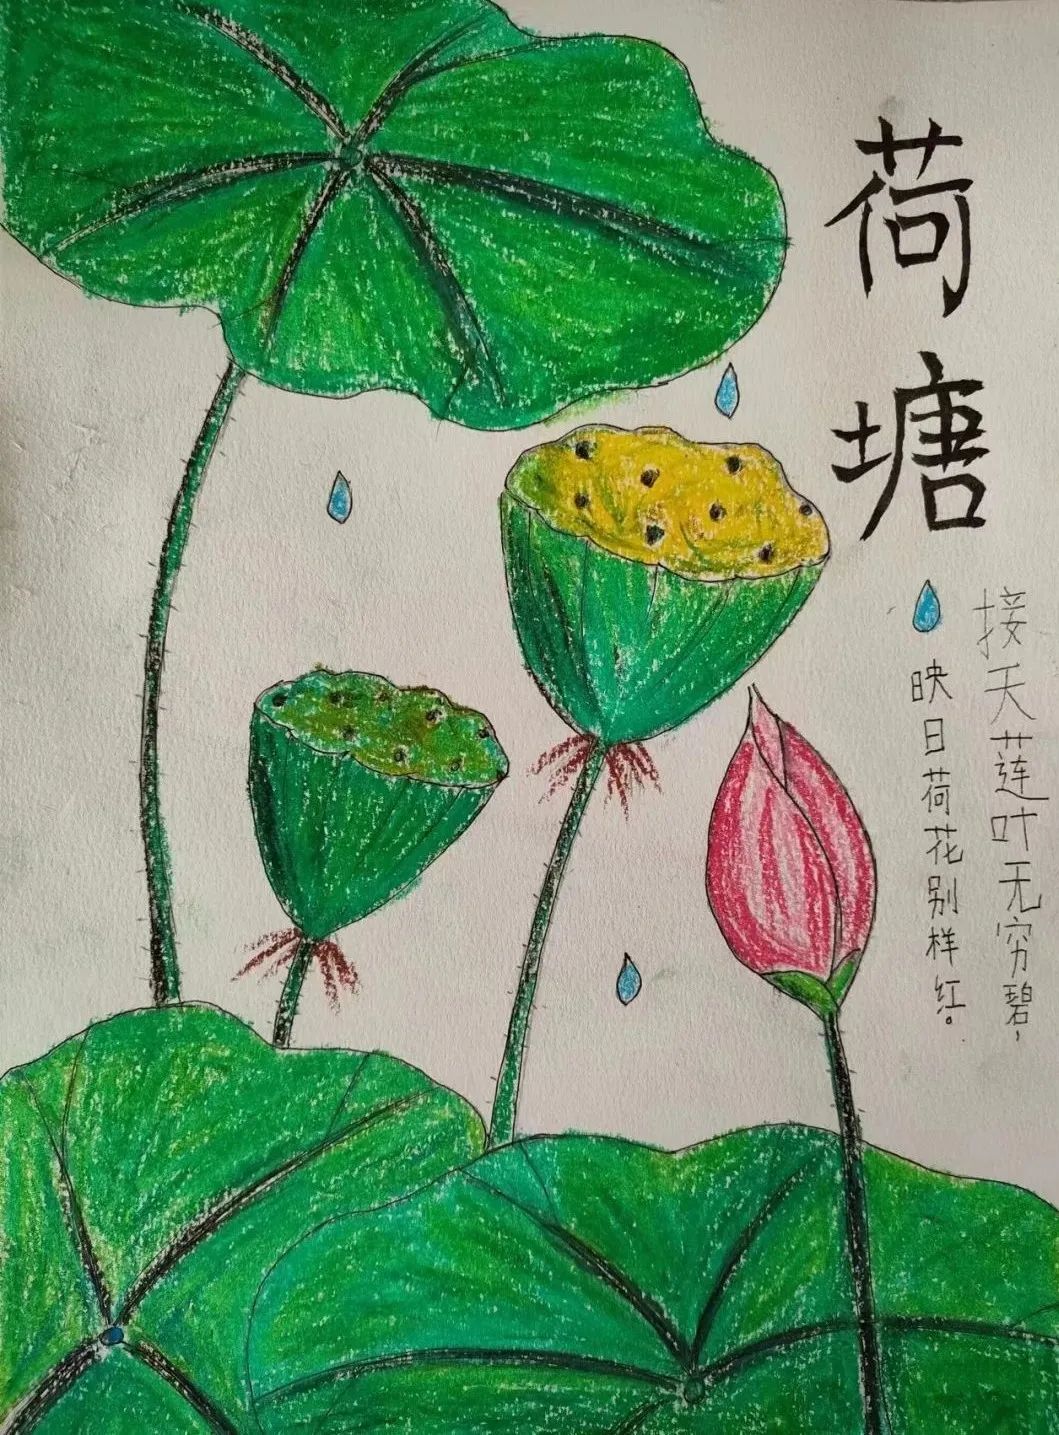 荷塘
接天莲叶无穷碧，
映日荷花别样红。